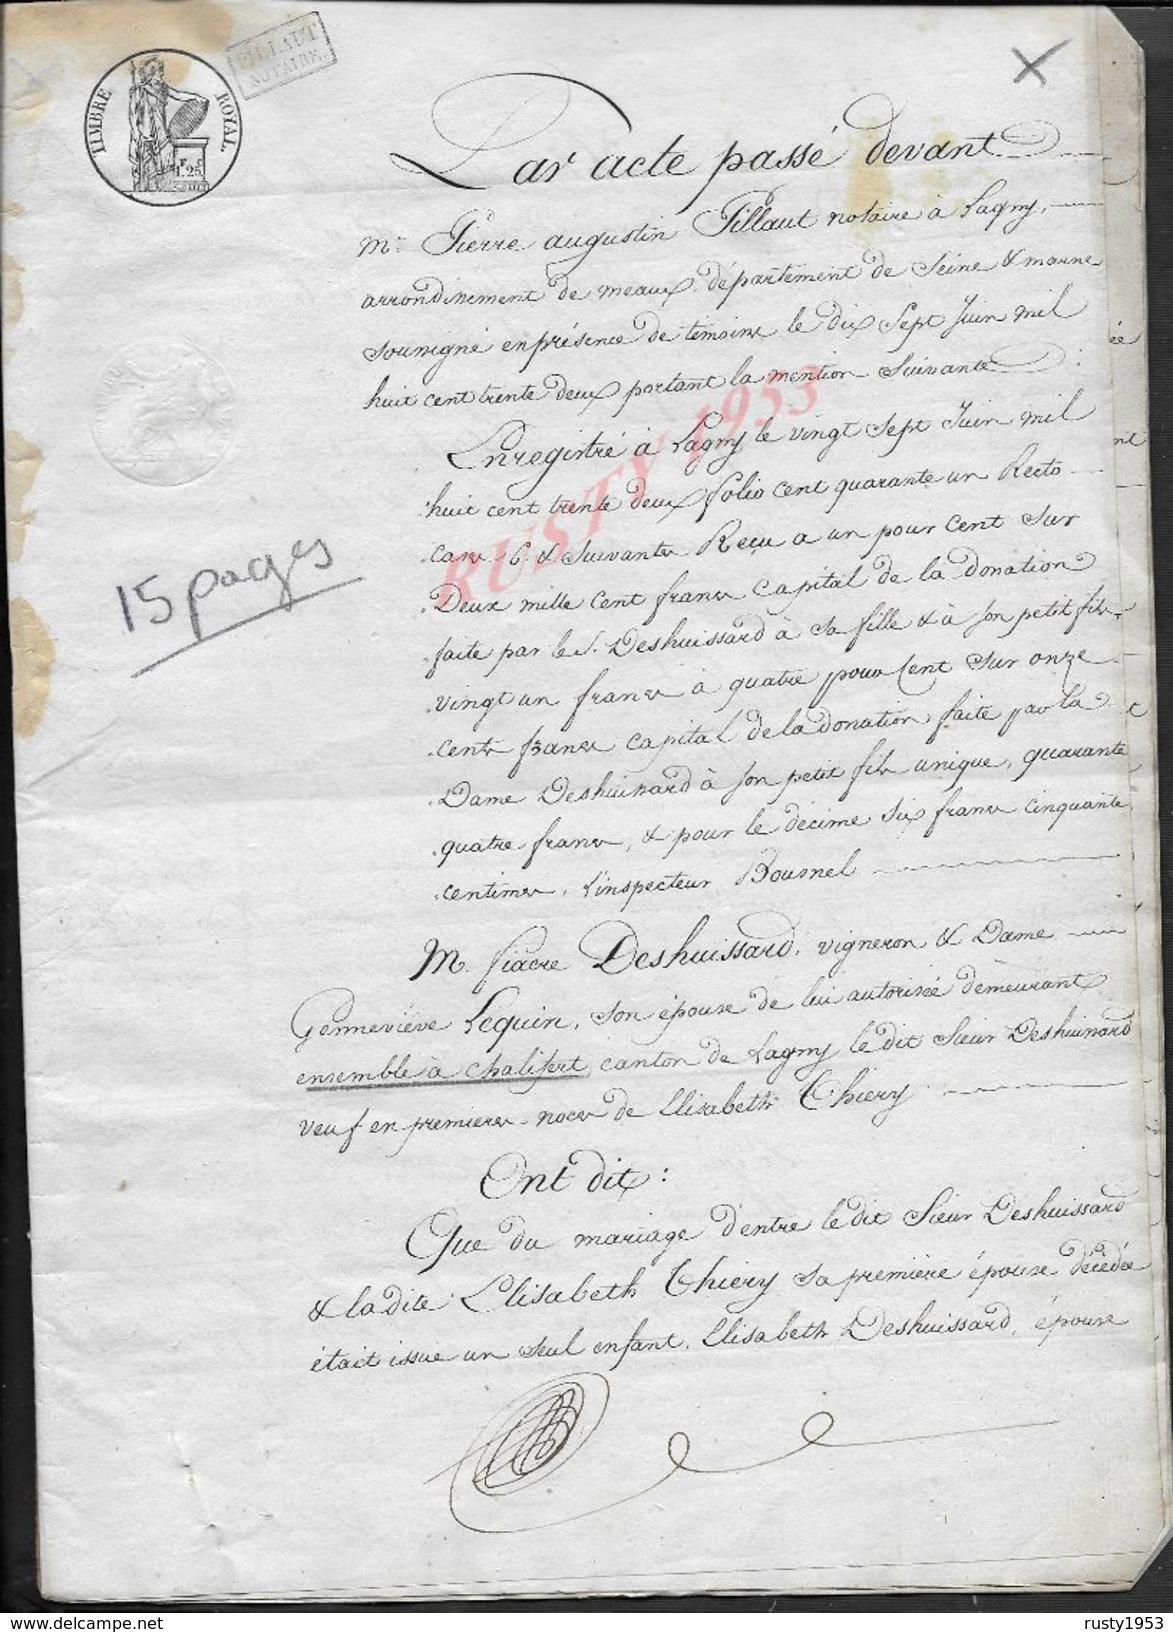 FILLAUT
NOTAIRE.
TIMBRE ROYAL.
F. C.
1. 25.
Par acte passé devant
Me. Pierre augustin Fillaut notaire à Lagny,
arrondissement de meaux, département de Seine & marne
soussigné en présence de témoins le dix Sept Juin mil
huit cent trente deux portant la mention Suivante :
Enregistré à Lagny le vingt Sept Juin mil
huit cent trente deux folio cent quarante un Recto
case 6. & Suivantes Reçu a un pour cent sur
Deux mille cent francs capital de la donation
faite par le S. Deshuissard à sa fille & à son petit fils
vingt un francs à quatre pour Cent sur onze
cents francs capital de la donation faite par la
Dame Deshuissard à son petit fils unique, quarante
quatre francs, & pour le décime six francs cinquante
centimes. L'inspecteur Bournel
M. fiacre Deshuissard, vigneron & Dame
Genneviève Lequin, son épouse de lui autorisée demeurant
ensemble à Chalifert, canton de Lagny le dit Sieur Deshuissard
veuf en premieres noces de Elisabeth Thiery
Ont dit :
Que du mariage d'entre le dit Sieur Deshuissard
& la dite Elisabeth Thiery sa première épouse décédée
était issue un seul enfant, Elisabeth Deshuissard, épouse
15 pages
RUSTY 1953
www.delcampe.net
rusty1953